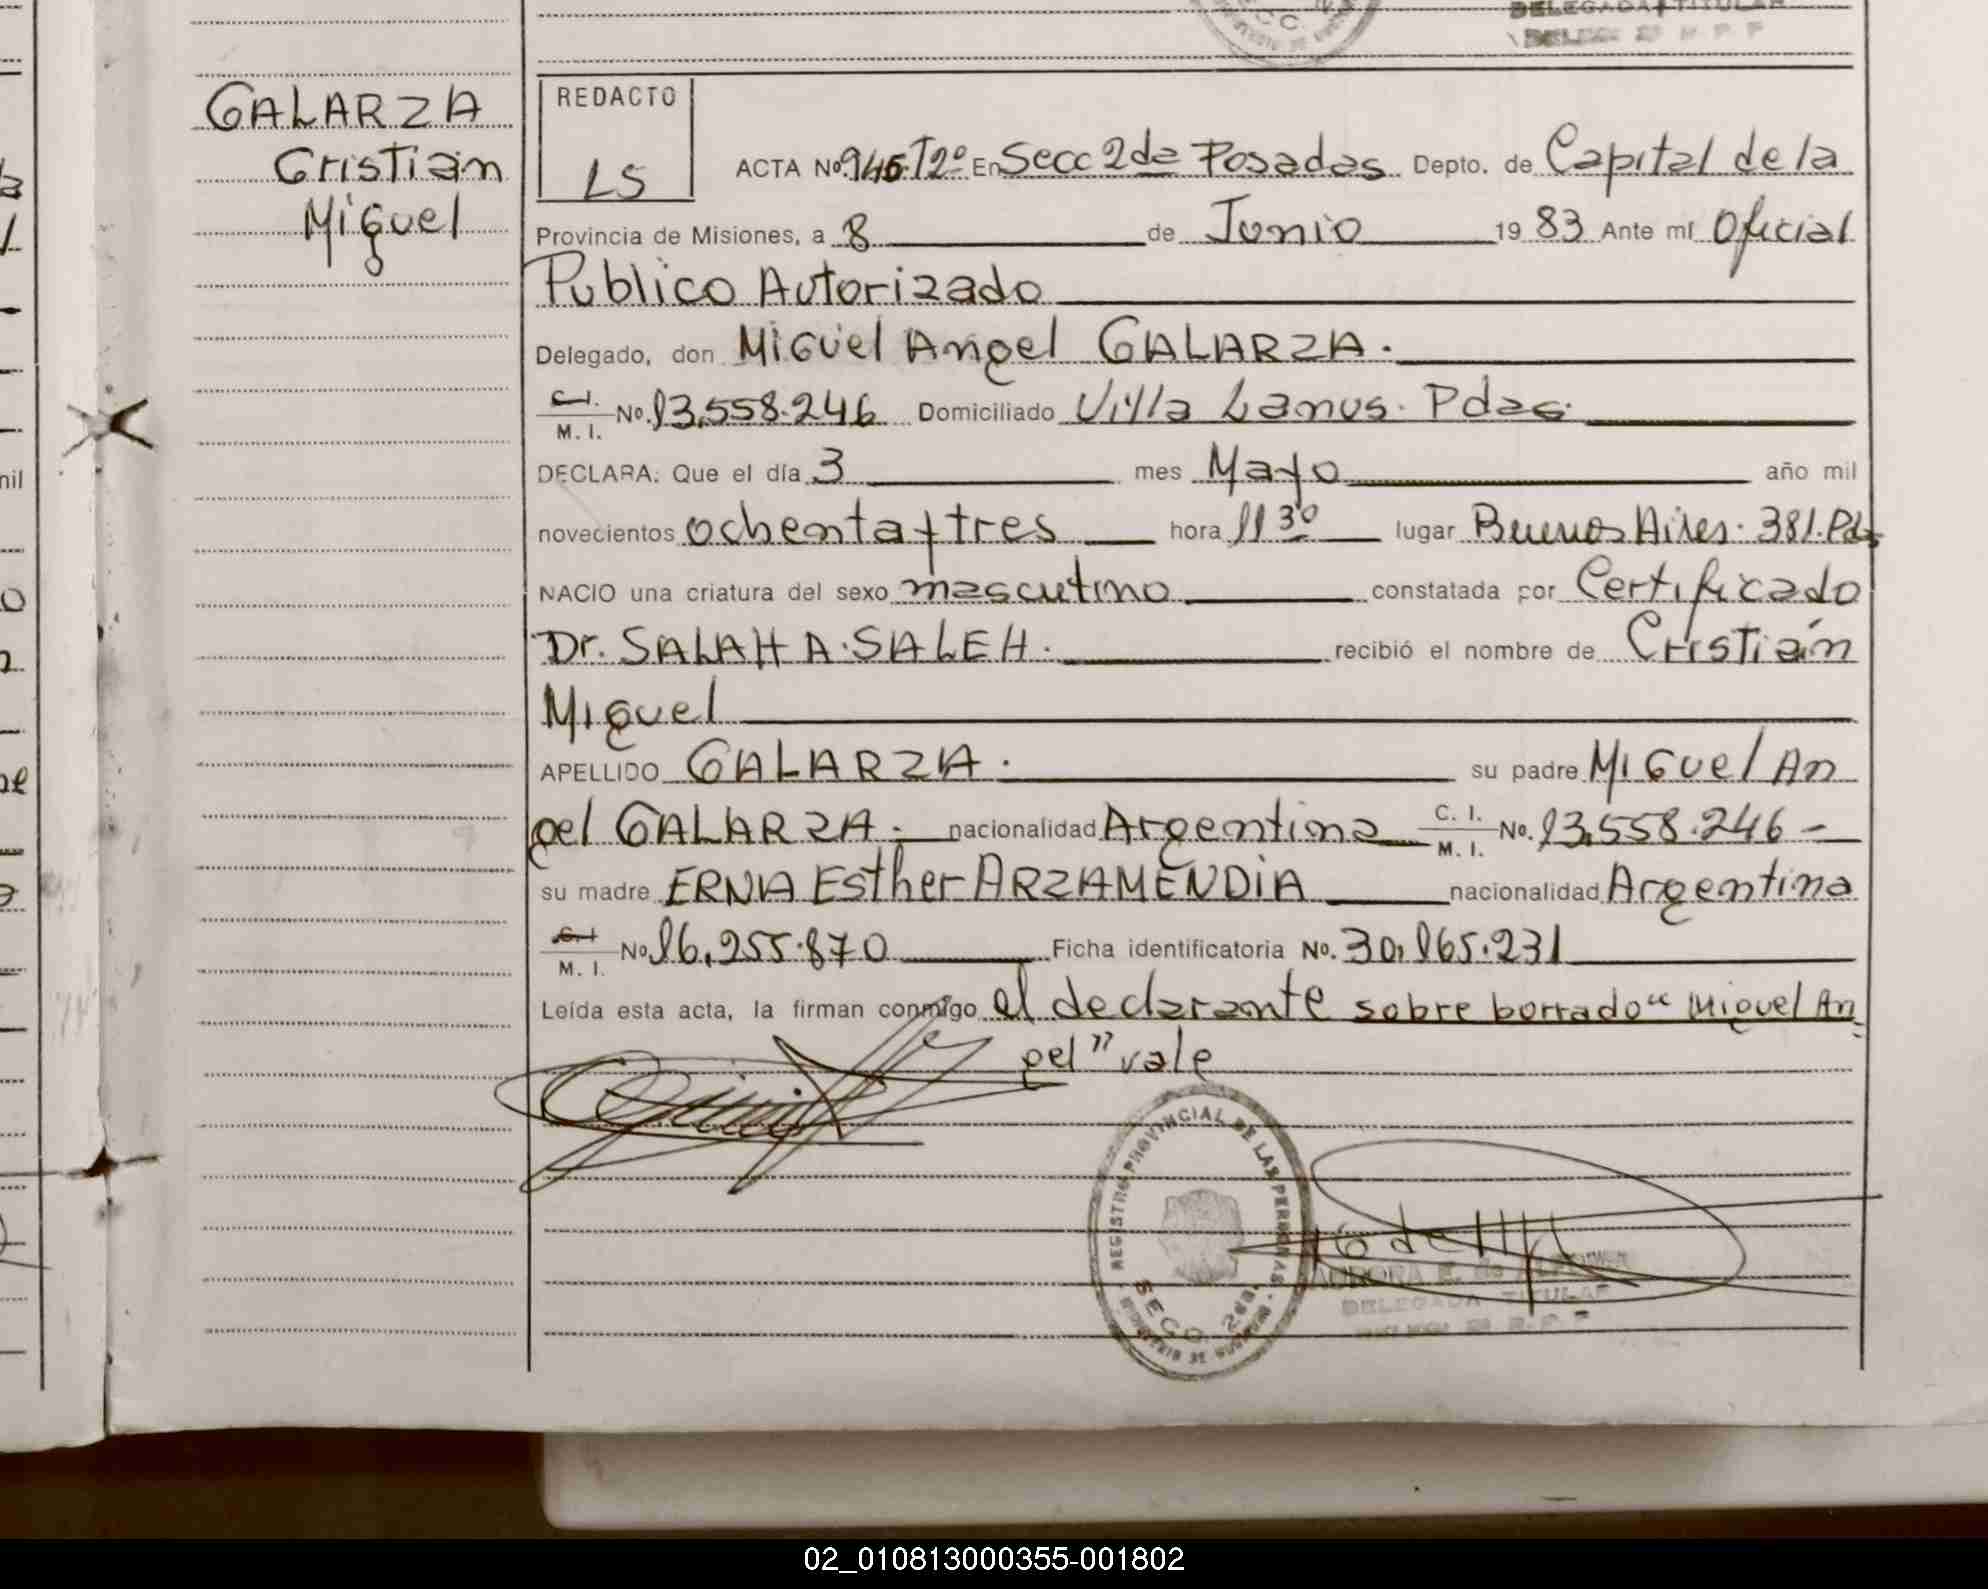 DELEGADA TITULAR
GALARZA
Cristián
Miguel
REDACTO
LS
ACTA No. 945. T2º En Secc 2da Posadas Depto. de Capital de la
Provincia de Misiones, a 8 de Junio 1983 Ante mí Oficial
Publico Autorizado
Delegado, don Miguel Angel GALARZA.
C.I. M. I. No. 13.558.246 Domiciliado Villa Lanus. Pdas.
DECLARA: Que el día 3 mes Mayo año mil
novecientos ochenta y tres hora 11 30 lugar Buenos Aires. 381. Pdas
NACIO una criatura del sexo masculino constatada por Certificado
Dr. SALAH A. SALEH. recibió el nombre de Cristián
Miguel
APELLIDO GALARZA. su padre Miguel An
gel GALARZA. nacionalidad Argentina C. I. M. I. No. 13.558.246 -
su madre ERNA Esther ARZAMENDIA nacionalidad Argentina
C.I M. I. No. 16.255.870 Ficha identificatoria No. 30.165.231
Leída esta acta, la firman conmigo el declarante sobre borrado "Miguel An=
gel" vale
REGISTRO PROVINCIAL DE LAS PERSONAS
SECC. 2da.
AURORA E. de
DELEGADA TITULAR
02_010813000355-001802